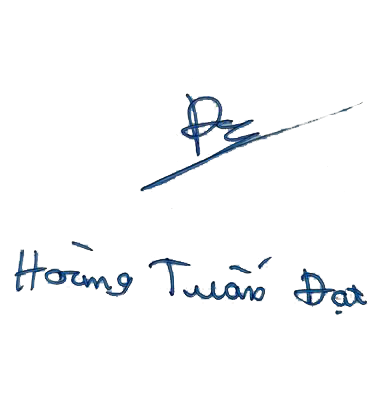 Hoàng Tuấn Đạt